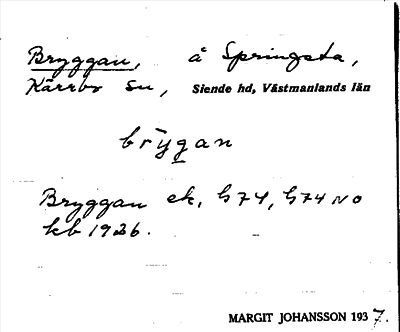 Bryggan, å Springsta,
Kärrbo sn, Siende hd, Västmanlands län
brygan
Bryggan ek, G74, G74 NO
kb 1926.
MARGIT JOHANSSON 1937.